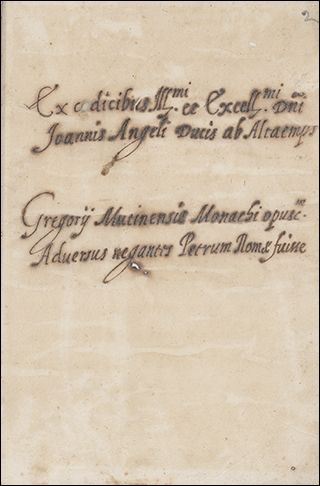 2
Ex codicibus Ill.mi et Excell.mi Dñi
Joannis Angeli Ducis ab Altaemps
Gregorij Mutinensis Monachi opusc.m
Adversus negantes Petrum Romæ fuisse